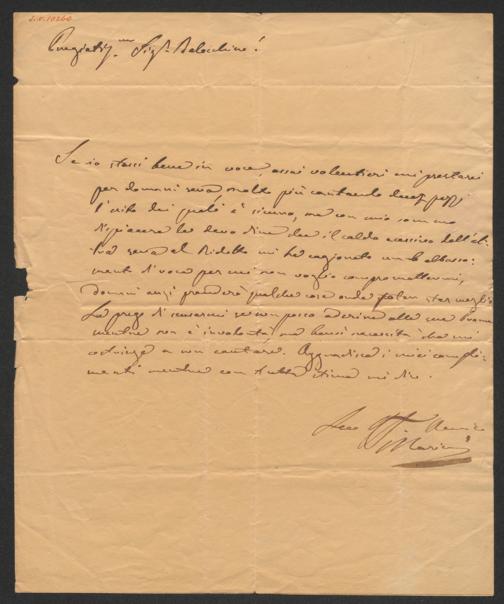 Pregiatis.mo Sig.r Balocchino!
Se io stassi bene in voce, assai volentieri mi prestarei
per domani sera, molto più cantando due pezzi
l'esito dei quali è sicuro, ma con mio sommo
dispiacere le devo dire che il caldo eccessivo dell'al-
tra sera al Ridotto mi ha cagionato un abbassa-
mento di voce per cui non voglio compromettermi,
domani anzi prenderò qualche cosa onde poter star meglio
La prego di scusarmi se non posso aderire alla sua brama
mentre non è involontà ma bensì necessità che mi
costringe a non cantare. Aggradisca i miei compli-
menti mentre con tutta stima mi dico
Suo Amico